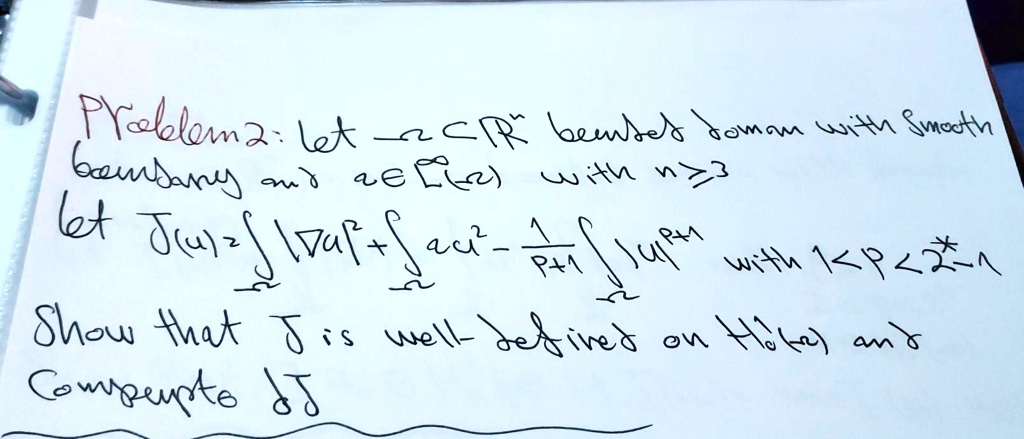 Problem 2: let Ω ⊂ ℝⁿ bounded domain with smooth
boundary and a ∈ L^∞(Ω) with n ≥ 3
let J(u) = ∫_Ω |∇u|² + ∫_Ω au² - 1/(P+1) ∫_Ω |u|^{P+1} with 1 < P < 2* - 1
Show that J is well-defined on H¹₀(Ω) and
Compute dJ